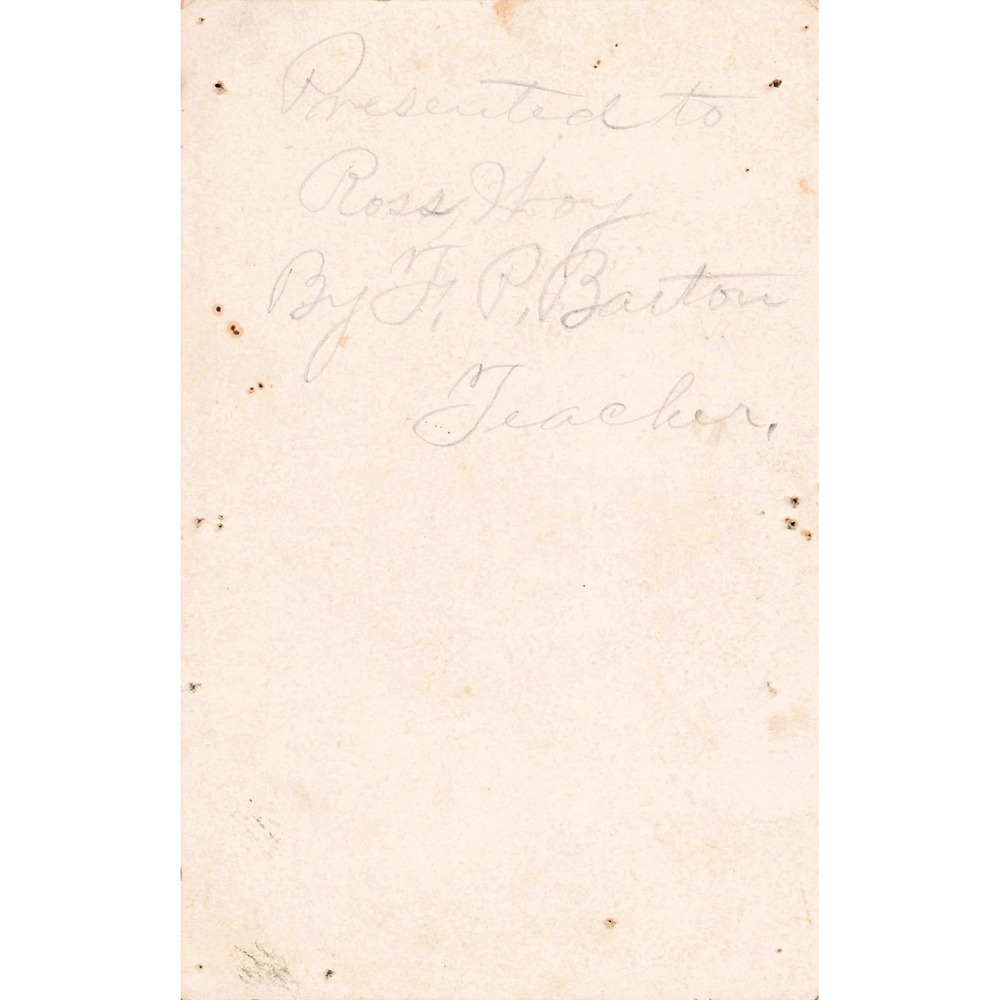 Presented to
Ross Hoy
By F. P. Barton
Teacher.